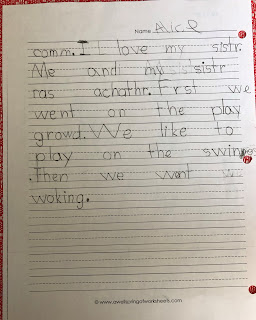 Name Alice
comm. I I love my sistr.
Me and my sistr
ras achathr. Frst we
went on the play
growd. We like to
play on the swings
. Then we want
woking.
© www.awellspringofworksheets.com